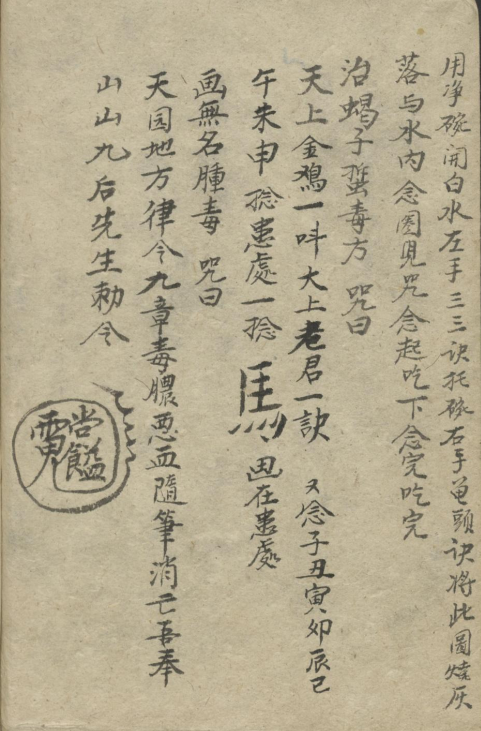 用净碗開白水左手三三诀托碗右手黾頭诀将此圖燒灰
落与水内念圈見咒念起吃下念完吃完
治蝎子蜇毒方 咒曰
天上金鴉一呌大上老君一訣 又念子丑寅卯辰巳
午未申捻患處一捻 画在患處
画無名腫毒 咒曰
天园地方律令九章毒膿惡血隨筆消亡吾奉
山山九后先生勅令